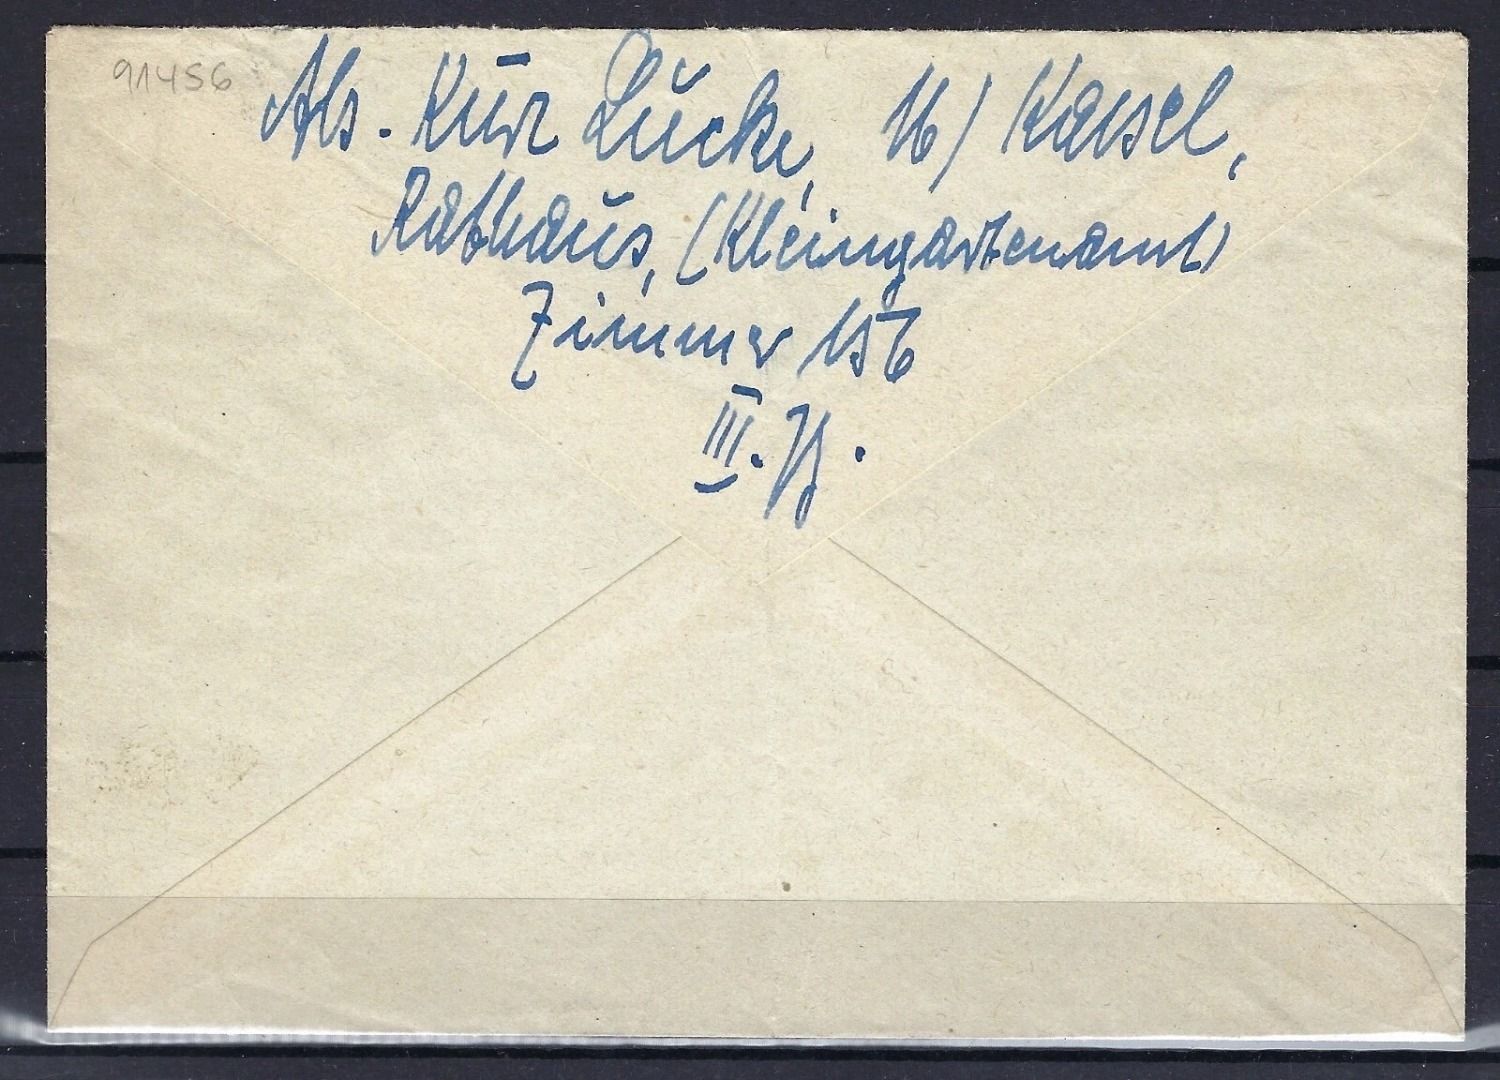 91456
Abs. Kurt Lücke, 16) Kassel,
Rathaus, (Kleingartenamt)
Zimmer 156
III.